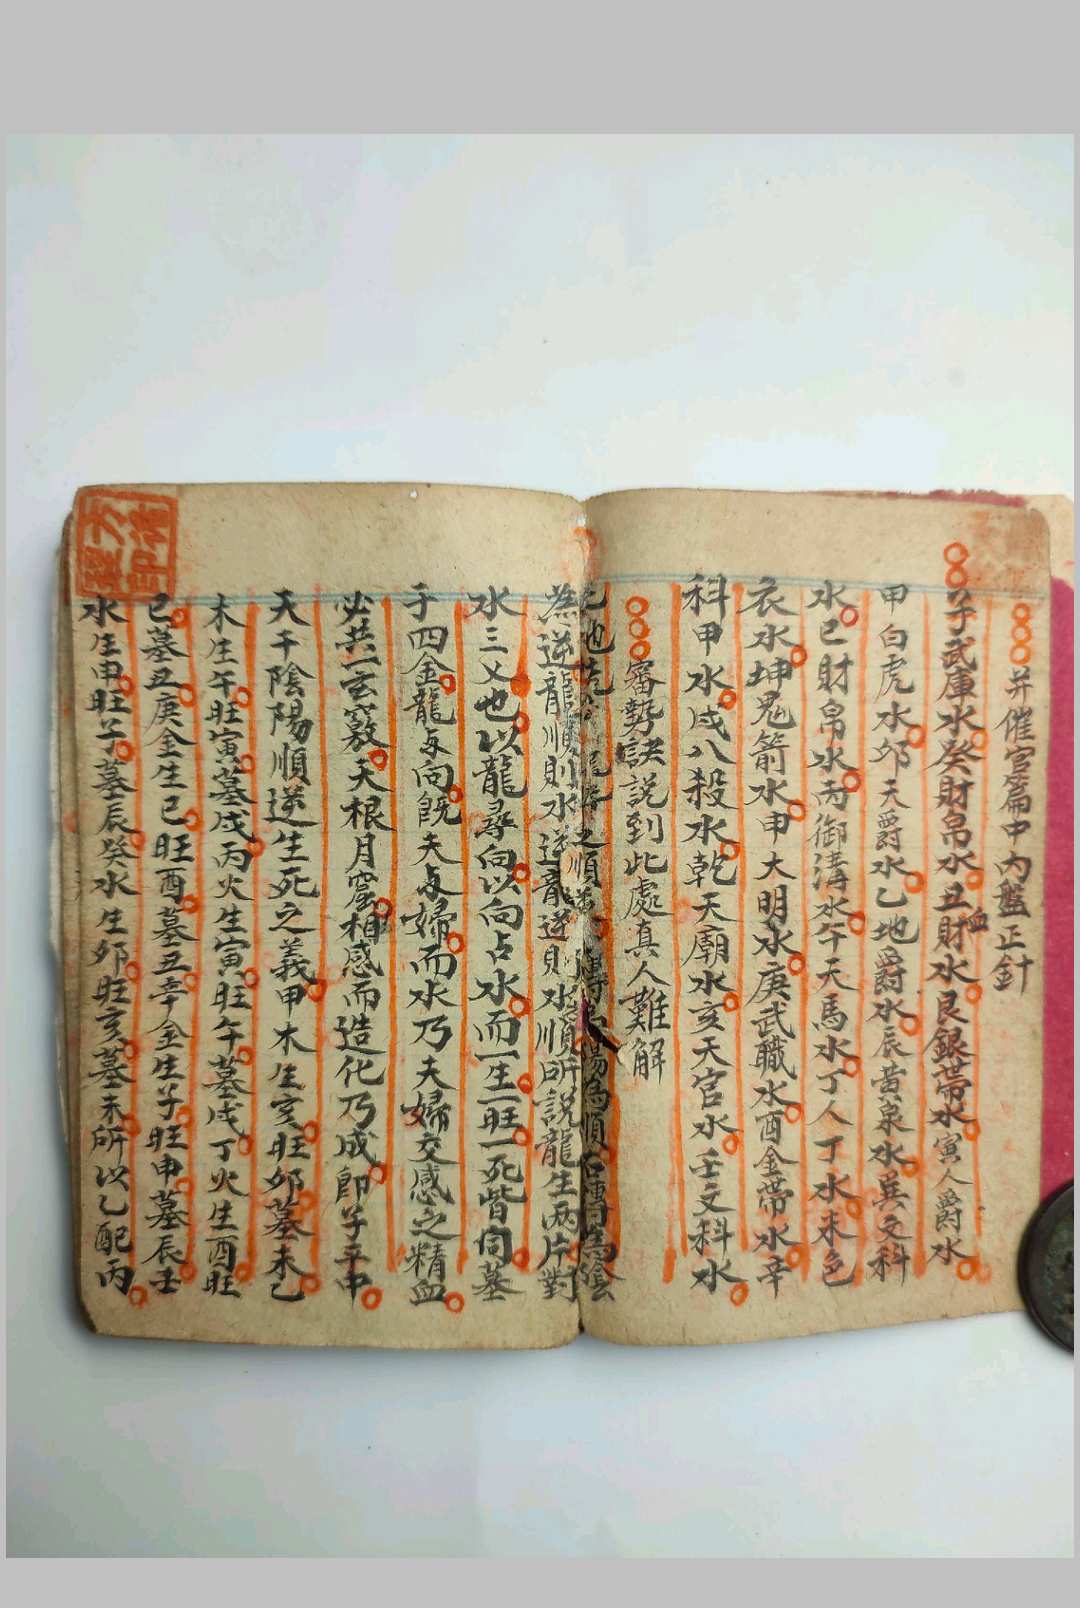 并催官篇中内盤正針
子武庫水癸財帛水丑財水艮銀帶水寅人爵水
血
甲白虎水夘天爵水乙地爵水辰黄泉水巽文科
水巳財帛水丙御溝水午天馬水丁人丁水未色
衣水坤鬼箭水申大明水庚武職水酉金帶水辛
科甲水戌八殺水乾天廟水亥天官水壬文科水
審勢訣說到此處真人難解
之順 為順右轉為陰
為逆龍順則水逆龍逆則水順所說龍生两片對
水三乂也以龍尋向以向占水而一生一旺一死皆同墓
子四金龍与向既夫与婦而水乃夫婦交感之精血
必共一玄竅天根月窟相感而造化乃成即子平中
天干陰陽順逆生死之義甲木生亥旺夘墓未乙
木生午旺寅墓戌丙火生寅旺午墓戌丁火生酉旺
巳墓丑庚金生巳旺酉墓丑辛金生子旺申墓辰壬
水生申旺子墓辰癸水生夘旺亥墓未所以乙配丙